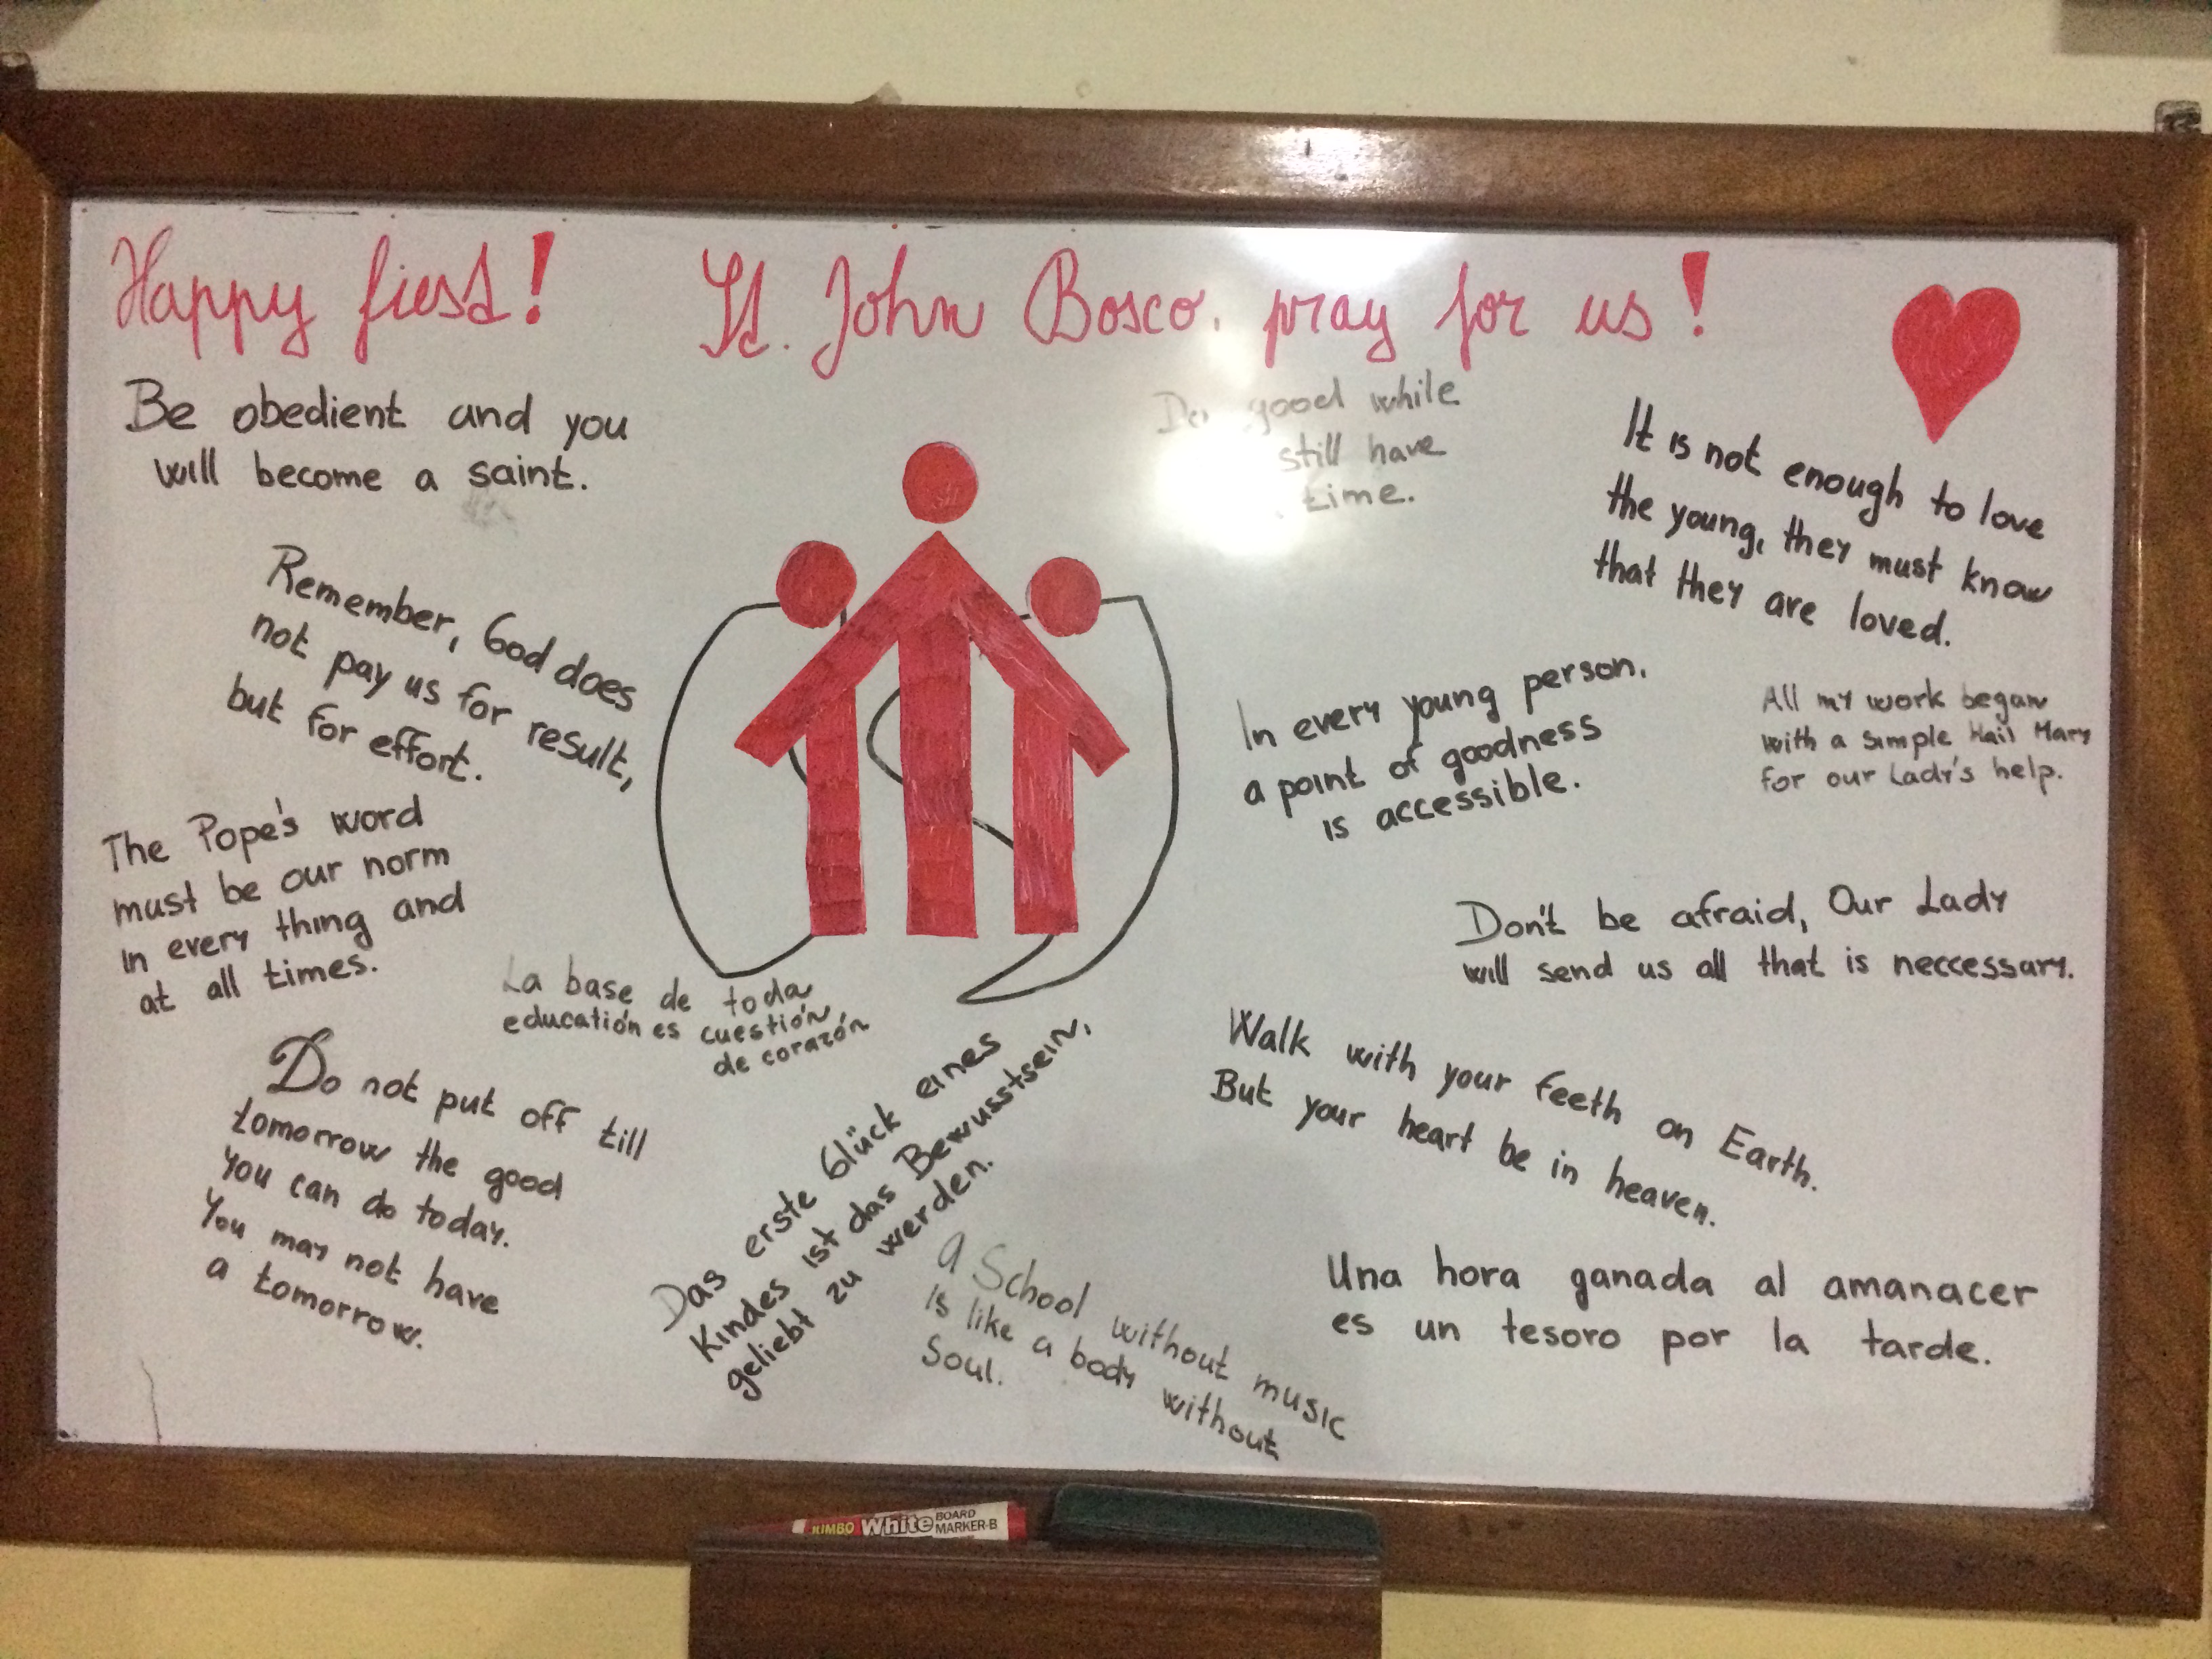 Happy fiest! St. John Bosco, pray for us!
Be obedient and you
will become a saint.
Do good while
still have
time.
It is not enough to love
the young, they must know
that they are loved.
Remember, God does
not pay us for result,
but for effort.
In every young person,
a point of goodness
is accessible.
All my work began
with a simple Hail Mary
for our Lady's help.
The Pope's word
must be our norm
in every thing and
at all times.
Don't be afraid, Our Lady
will send us all that is neccessary.
La base de toda
educatión es cuestión
de corazón
Walk with your feeth on Earth.
But your heart be in heaven.
Do not put off till
tomorrow the good
you can do today.
You may not have
a tomorrow.
Das erste Glück eines
Kindes ist das Bewusstsein,
geliebt zu werden.
A School without music
is like a body without
Soul.
Una hora ganada al amanacer
es un tesoro por la tarde.
KIMBO White BOARD
MARKER-B